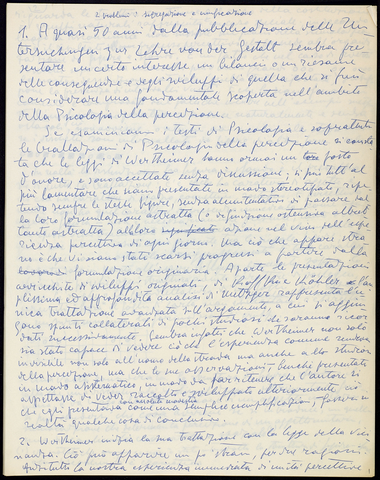 2 problemi: segregazione e unificazione
1. A quasi 50 anni dalla pubblicazione delle Un-
tersuchungen zur Lehre von der Gestalt sembra pre-
sentare un certo interesse un bilancio o un riesame
delle conseguenze e degli sviluppi di quella che si può
considerare una fondamentale scoperta nell'ambito
della Psicologia della percezione.
Se esaminiamo i testi di Psicologia e soprattutto
le trattazioni di Psicologia della percezione si consta-
ta che le leggi di Wertheimer hanno ormai un loro posto
d'onore, e sono accettate senza discussione; si può tutt'al
più lamentare che siano presentate in modo stereotipato, ripe-
tendo sempre le stesse figure, senza alcun tentativo di passare dal-
la loro formulazione astratta (o definizione ostensiva altret-
tanto astratta) al loro azione nel vivo dell'espe-
rienza percettiva di ogni giorno. Ma ciò che appare stra-
no è che vi siano stati scarsi progressi a partire dalla
formulazione originaria. A parte le presentazioni
arricchite di sviluppi originali, di Koffka e Köhler
ed approfondita analisi di Metzger rappresenta l'u-
nica trattazione avanzata sull'argomento, a cui si aggiun-
gono spunti collaterali di pochi studiosi che saranno ricor-
dati successivamente. Sembra infatti che Wertheimer non solo
sia stato capace di vedere ciò che l'esperienza comune rendeva
invisibile non solo all'uomo della strada ma anche allo studioso
della percezione, ma che le sue osservazioni, benché presentate
in modo asistematico, in modo da far ritenere che l'autore si
aspettasse di veder raccolto e sviluppato ulteriormente, ciò
che egli presentava come una semplice esemplificazione, fossero in
realtà qualche cosa di conclusivo.
2. Wertheimer inizia la sua trattazione con la legge della vici-
nanza. Ciò può apparire un po' strano, per due ragioni.
Anzitutto la nostra esperienza immediata di unità percettive